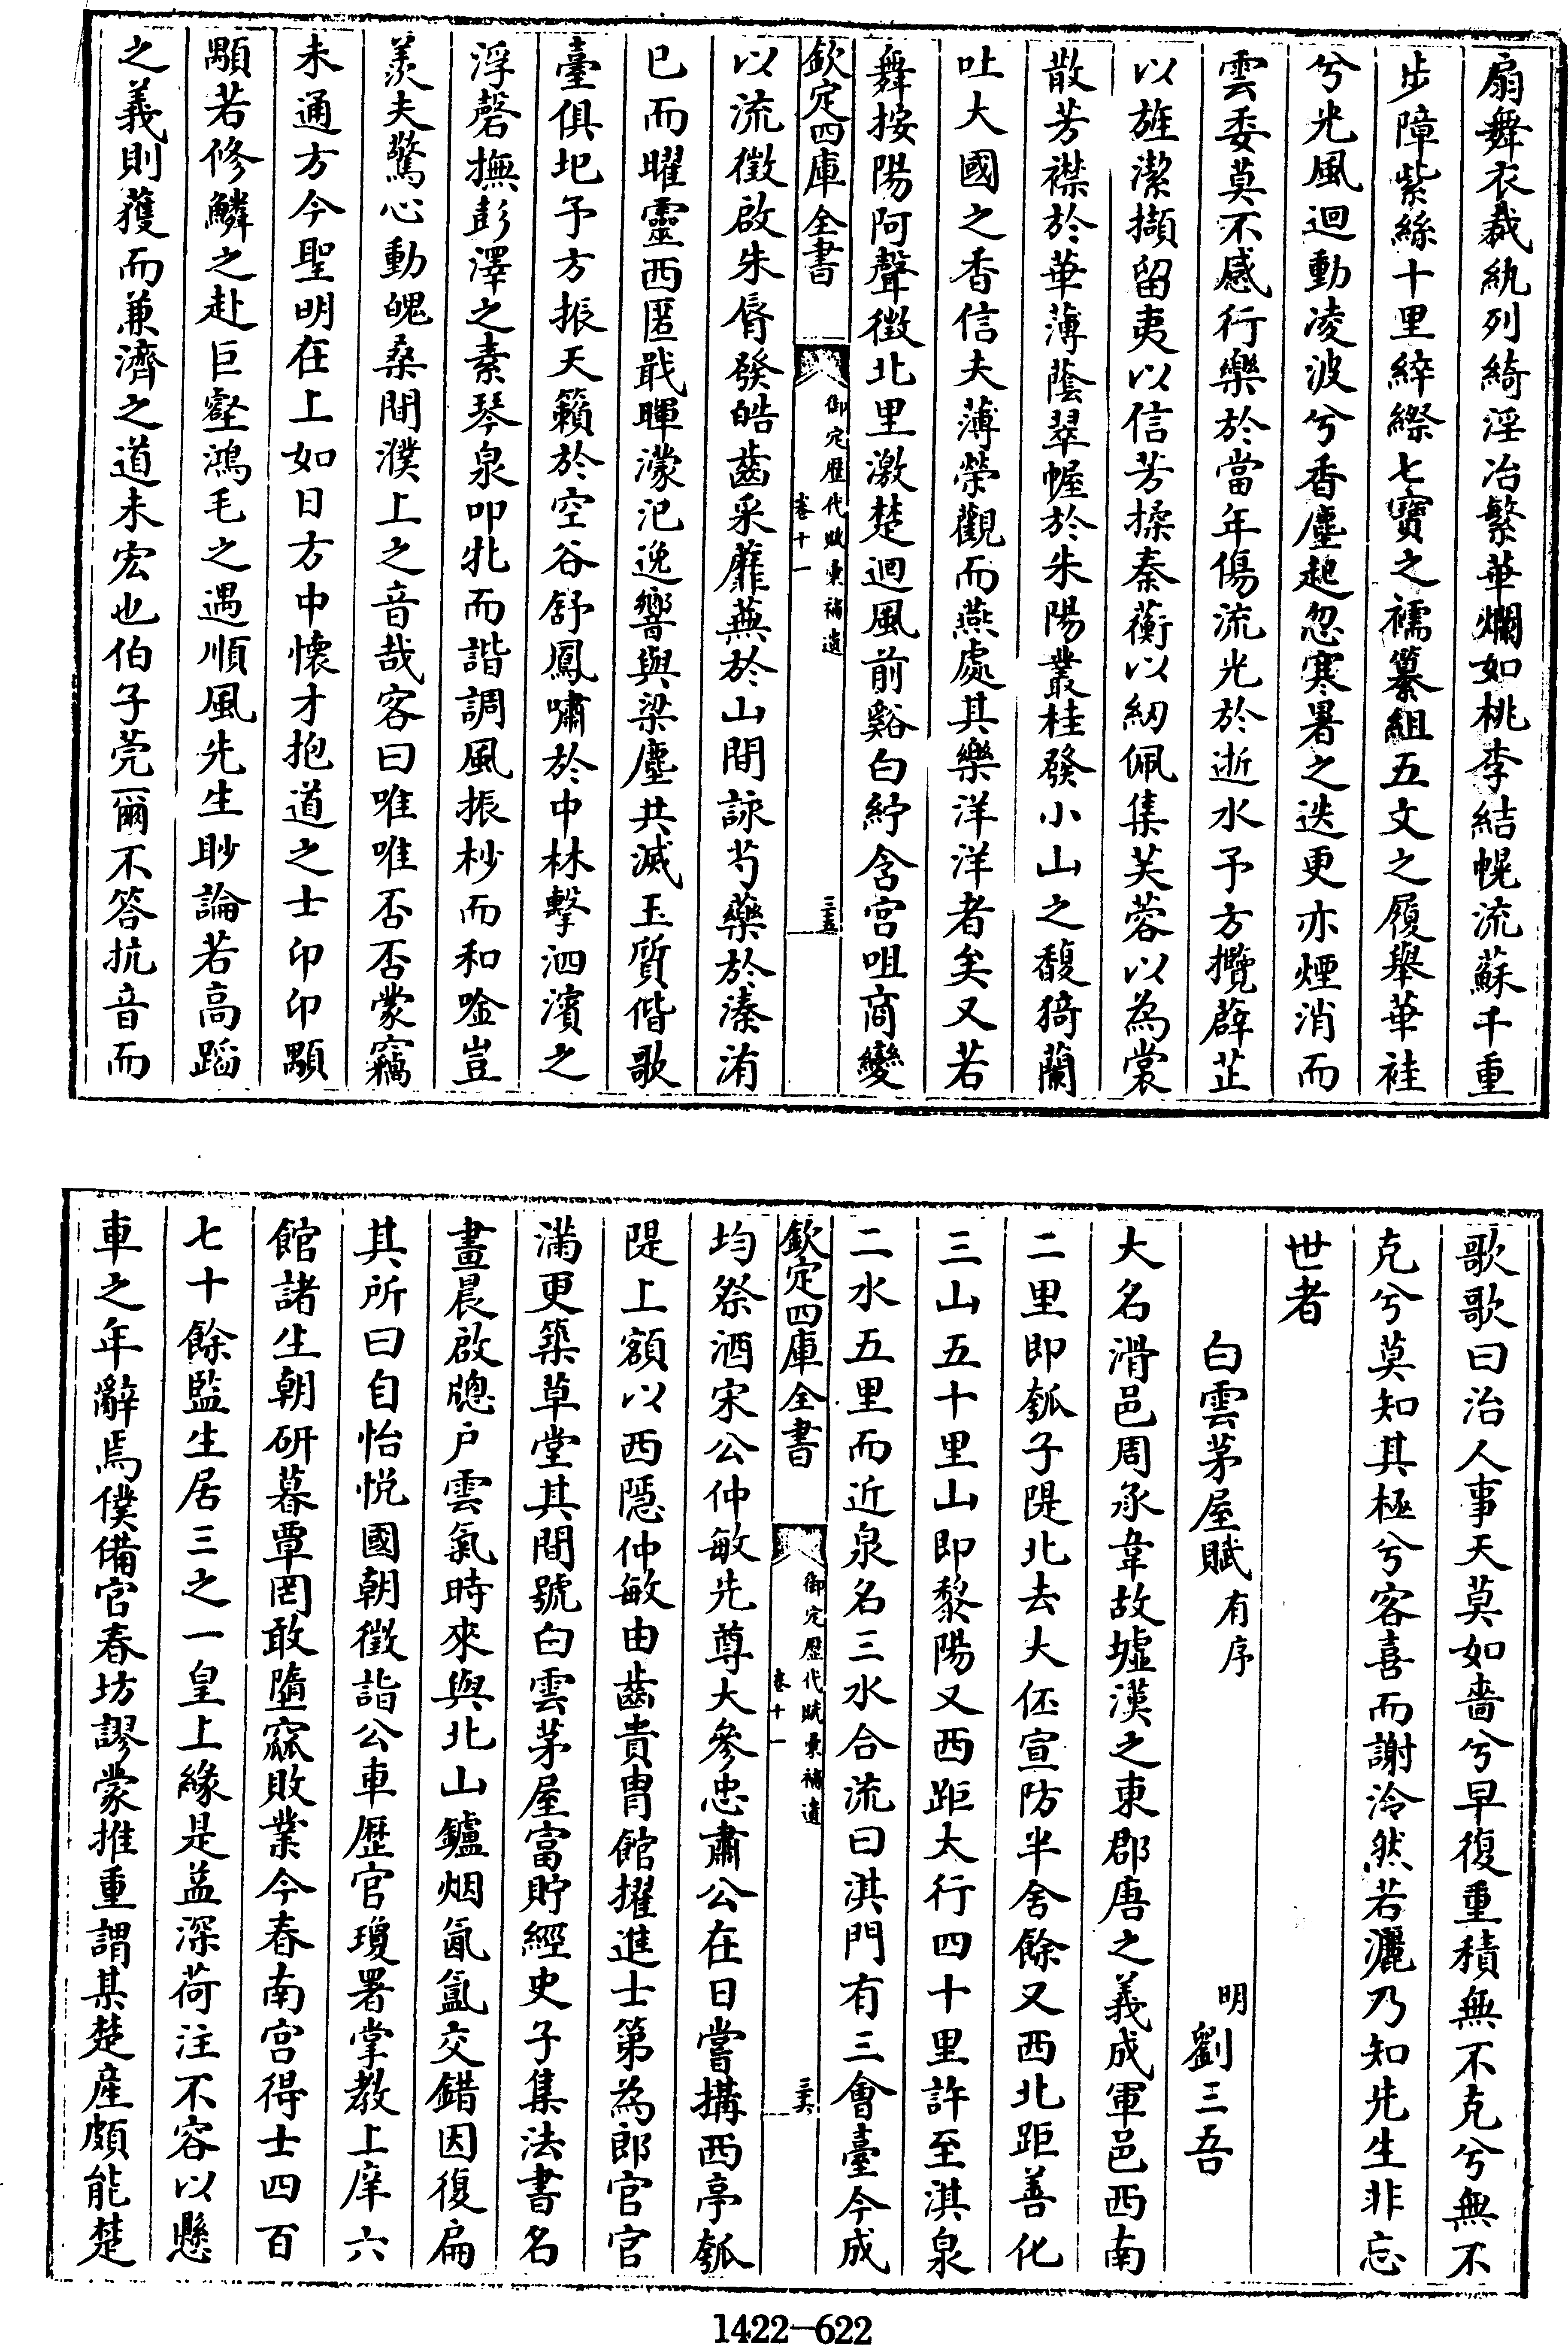 扇舞衣裁紈列綺淫冶繁華爛如桃李結幌流蘇千重
步障紫絲十里綷縩七寶之襦纂組五文之履舉華袿
兮光風迴動凌波兮香塵起忽寒暑之迭更亦煙消而
雲委莫不感行樂於當年傷流光於逝水予方攬薜芷
以旌潔擷留夷以信芳揉秦蘅以紉佩集芙蓉以為裳
散芳襟於華薄蔭翠幄於朱陽叢桂發小山之馥猗蘭
吐大國之香信夫薄榮觀而燕處其樂洋洋者矣又若
舞按陽阿聲徵北里激楚迴風前谿白紵含宫咀商變
欽定四庫全書
御定歷代賦彙補遺
卷十一
三五
以流徵啟朱脣發皓齒采蘼蕪於山間詠芍藥於溱洧
已而曜靈西匿戢暉濛汜逸響與梁塵共滅玉質偕歌
臺俱圮予方振天籟於空谷舒鳳嘯於中林擊泗濱之
浮磬撫彭澤之素琴泉叩牝而諧調風振杪而和唫豈
羨夫驚心動魄桑間濮上之音哉客曰唯唯否否蒙竊
未通方今聖明在上如日方中懷才抱道之士卬卬顒
顒若修鱗之赴巨壑鴻毛之遇順風先生眇論若高蹈
之義則獲而兼濟之道未宏也伯子莞爾不答抗音而
歌歌曰治人事天莫如嗇兮早復重積無不克兮無不
克兮莫知其極兮客喜而謝泠然若灑乃知先生非忘
世者
白雲茅屋賦 有序
明 劉三吾
大名滑邑周承韋故墟漢之東郡唐之義成軍邑西南
二里即瓠子隄北去大伾宣防半舍餘又西北距善化
三山五十里山即黎陽又西距太行四十里許至淇泉
二水五里而近泉名三水合流曰淇門有三會臺今成
欽定四庫全書
御定歷代賦彙補遺
卷十一
三六
均祭酒宋公仲敏先尊大參忠肅公在日嘗搆西亭瓠
隄上額以西隱仲敏由齒貴胄館擢進士第為郎官官
滿更築草堂其間號白雲茅屋富貯經史子集法書名
畫晨啟牕户雲氣時來與北山鑪烟氤氳交錯因復扁
其所曰自怡悦國朝徵詣公車歷官瓊署掌教上庠六
館諸生朝研暮覃罔敢墮窳敗業今春南宫得士四百
七十餘監生居三之一皇上緣是益深荷注不容以懸
車之年辭焉僕備官春坊謬蒙推重謂某楚産頗能楚
1422—622